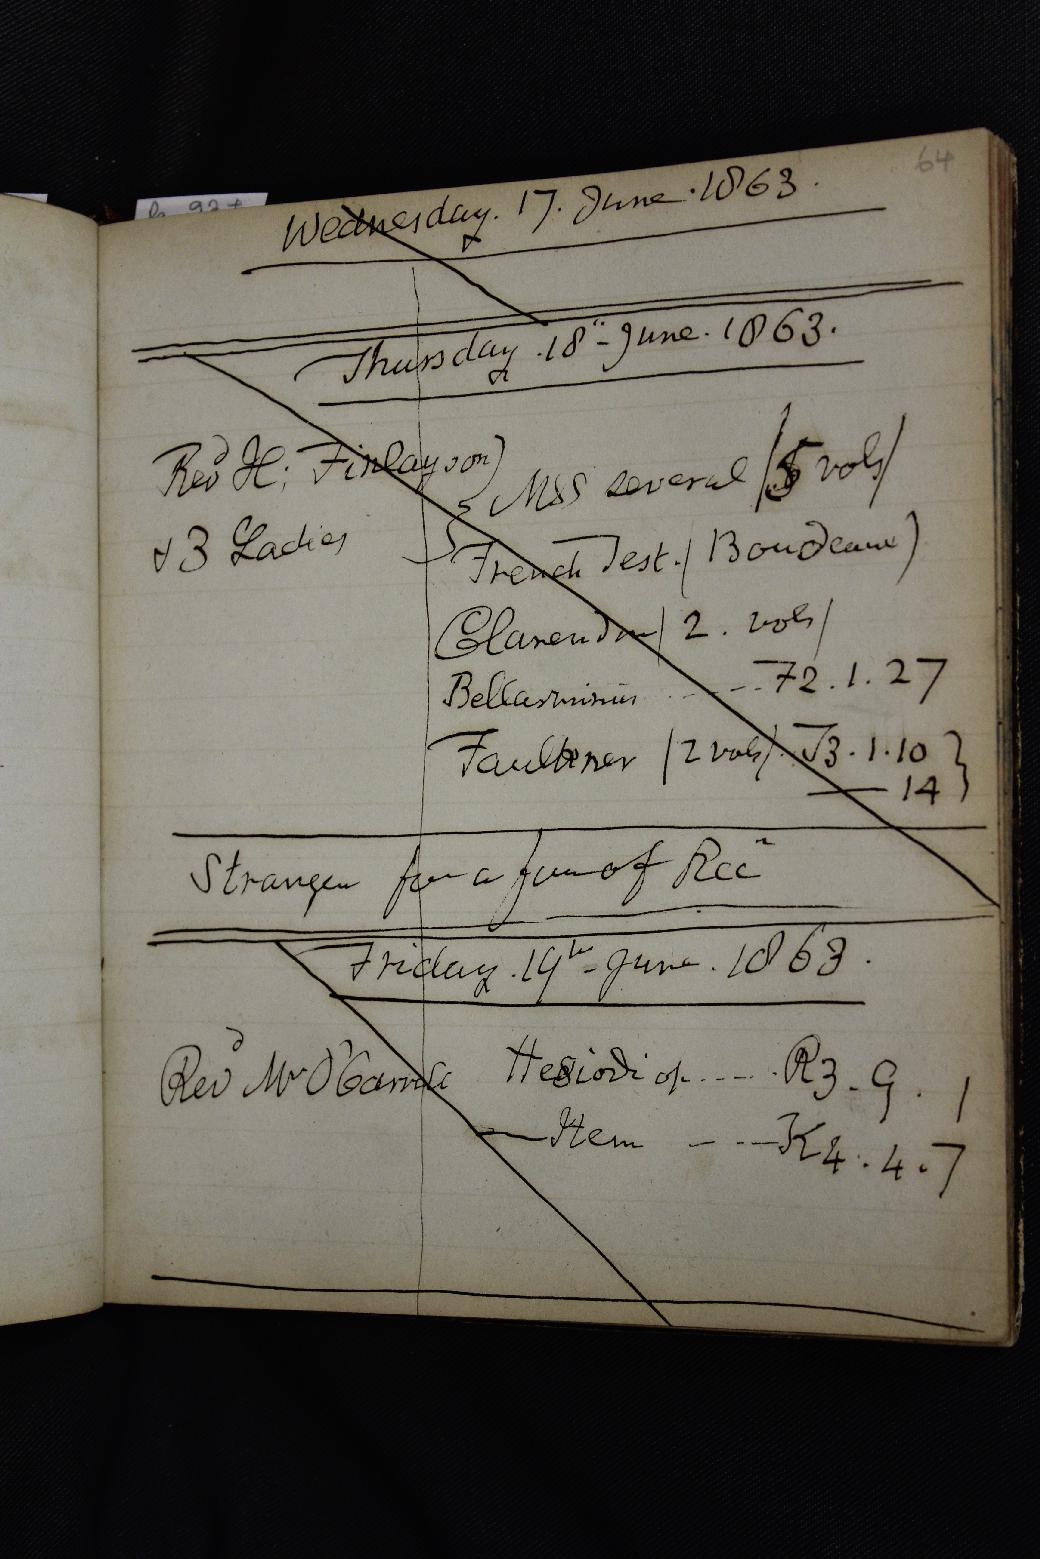 64
Wednesday. 17. June. 1863.
Thursday. 18th June. 1863.
Revd H; Finlayson } MSS several (5 vols)
& 3 Ladies
French Test. (Bourdeaux)
Clarendon (2. vols)
Bellarminus ---- 72.1.27
Faulkner (2 vols). J3.1.10 }
—— 14
Stranger for a
Friday. 19th June. 1863.
Revd Mr O'Carroll Hesiodi op. ---- R3.9.1
— Item ---- K4.4.7